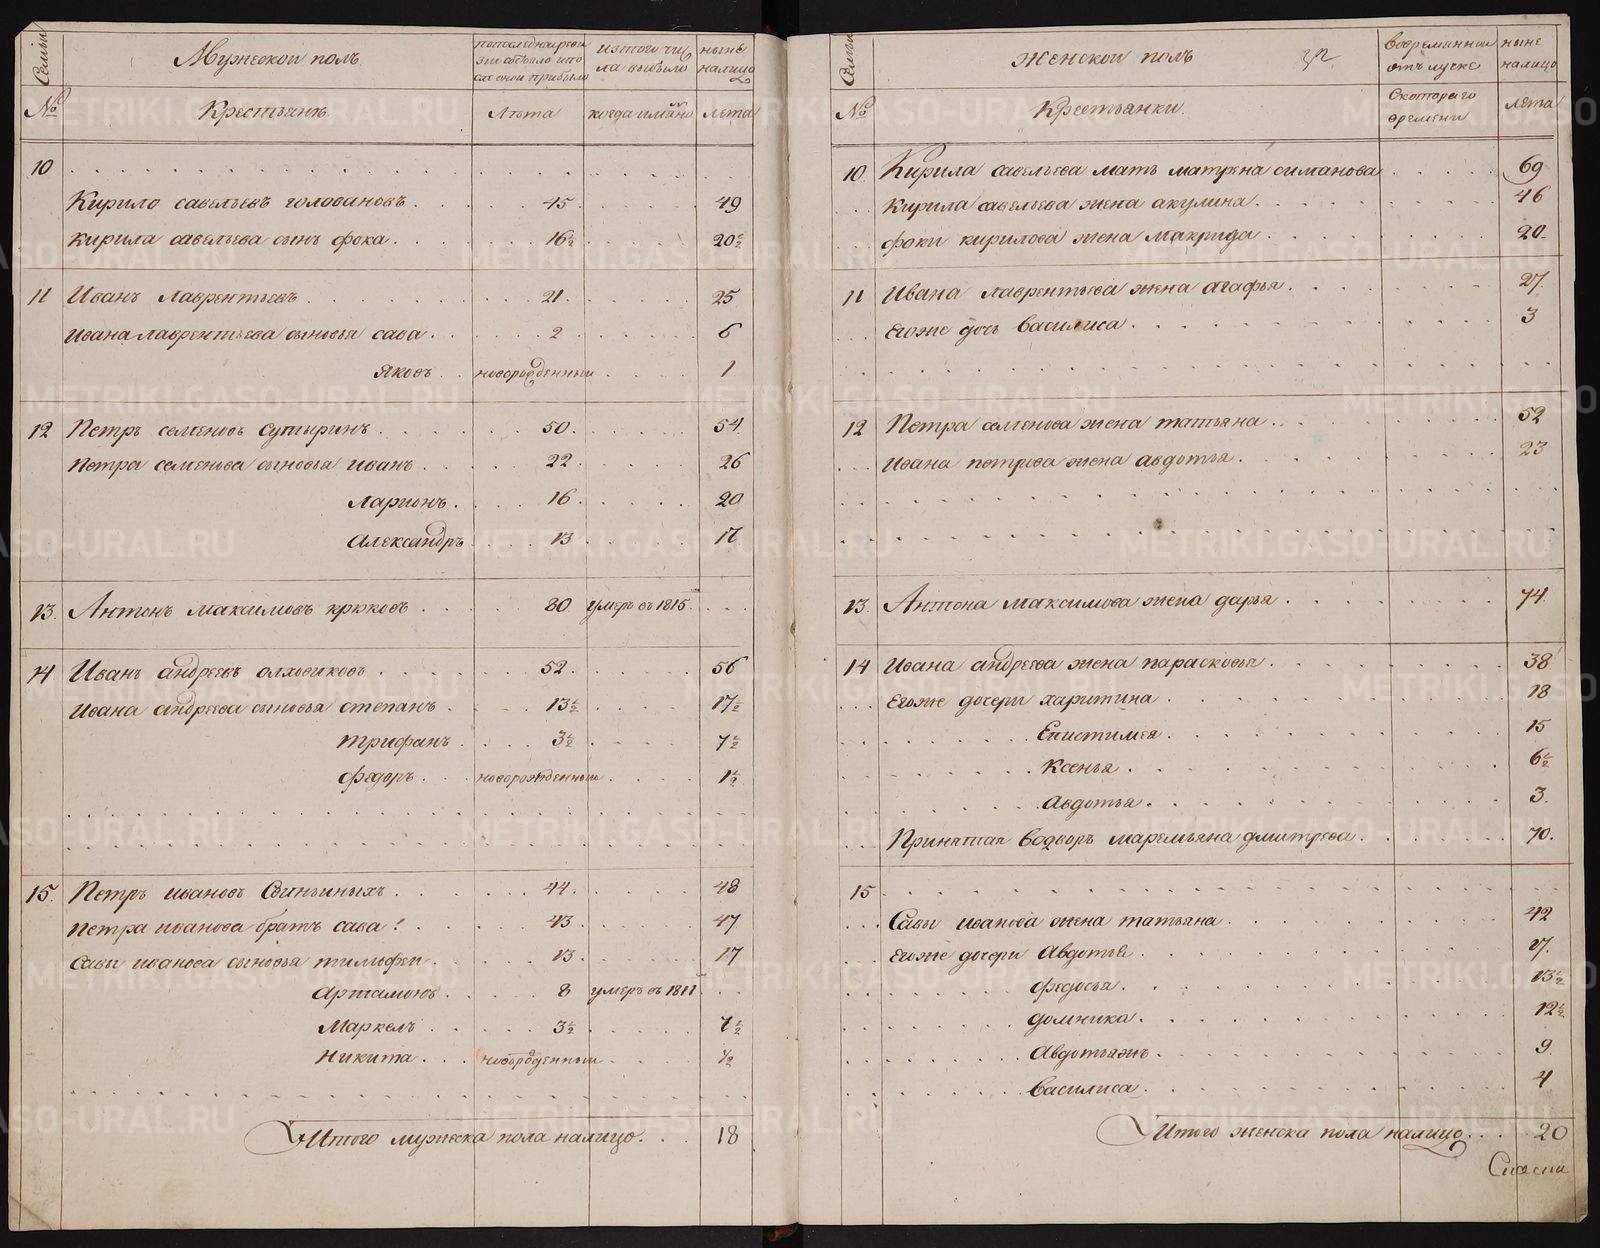 Семьи
Мужескои полъ
попоследнеи реви
зіи состояло ипо
сле оной прибыло
изтого чи
сла выбыло
ныне
налицо
№
Крестьянъ
Лѣта
когда имянно
лета
10
Кирило савельевъ головановъ 45 49
Кирила савельева сынъ фока 16½ 20½
11 Иванъ лаврентьевъ 21 25
Ивана лаврентьева сыновья сава 2 6
Яковъ новорожденныи 1
12 Петръ семеновъ сутыринъ 50 54
Петра семенова сыновья иванъ 22 26
Ларионъ 16 20
Александръ 13 17
13 Антонъ максимовъ крюковъ 80 умеръ въ 1815
14 Иванъ андреевъ олховиковъ 52 56
Ивана андреева сыновья степанъ 13½ 17½
трифанъ 3½ 7½
федоръ новорожденныи 1½
15 Петръ ивановъ Свиньиныхъ 44 48
Петра иванова братъ сава 43 47
Савы иванова сыновья тимофеи 13 17
Артамонъ 8 умеръ въ 1811
Маркелъ 3½ 7½
Никита новорожденныи ½
Итого мужеска пола налицо 18
Семьи
женскои полъ
вовременнои
отълучке
ныне
налицо
№
Крестьянки
Скотораго
времени
лета
10 Кирила савельева мать матрена симанова 69
Кирила савельева жена акулина 46
фоки кирилова жена макрида 20
11 Ивана лаврентьева жена агафья 27
Егоже дочь василиса 3
12 Петра семенова жена татьяна 52
Ивана петрова жена авдотья 23
13 Антона максимова жена дарья 74
14 Ивана андреева жена парасковья 38
Егоже дочери харитина 18
Епистимея 15
Ксенья 6½
Авдотья 3
Принятая водворъ маремьяна дмитрева 70
15
Савы иванова жена татьяна 42
Егоже дочери Авдотья 17
федосья 13½
домника 12½
Авдотьяжъ 9
василиса 4
Итого женска пола налицо 20
METRIKI.GASO-URAL.RU